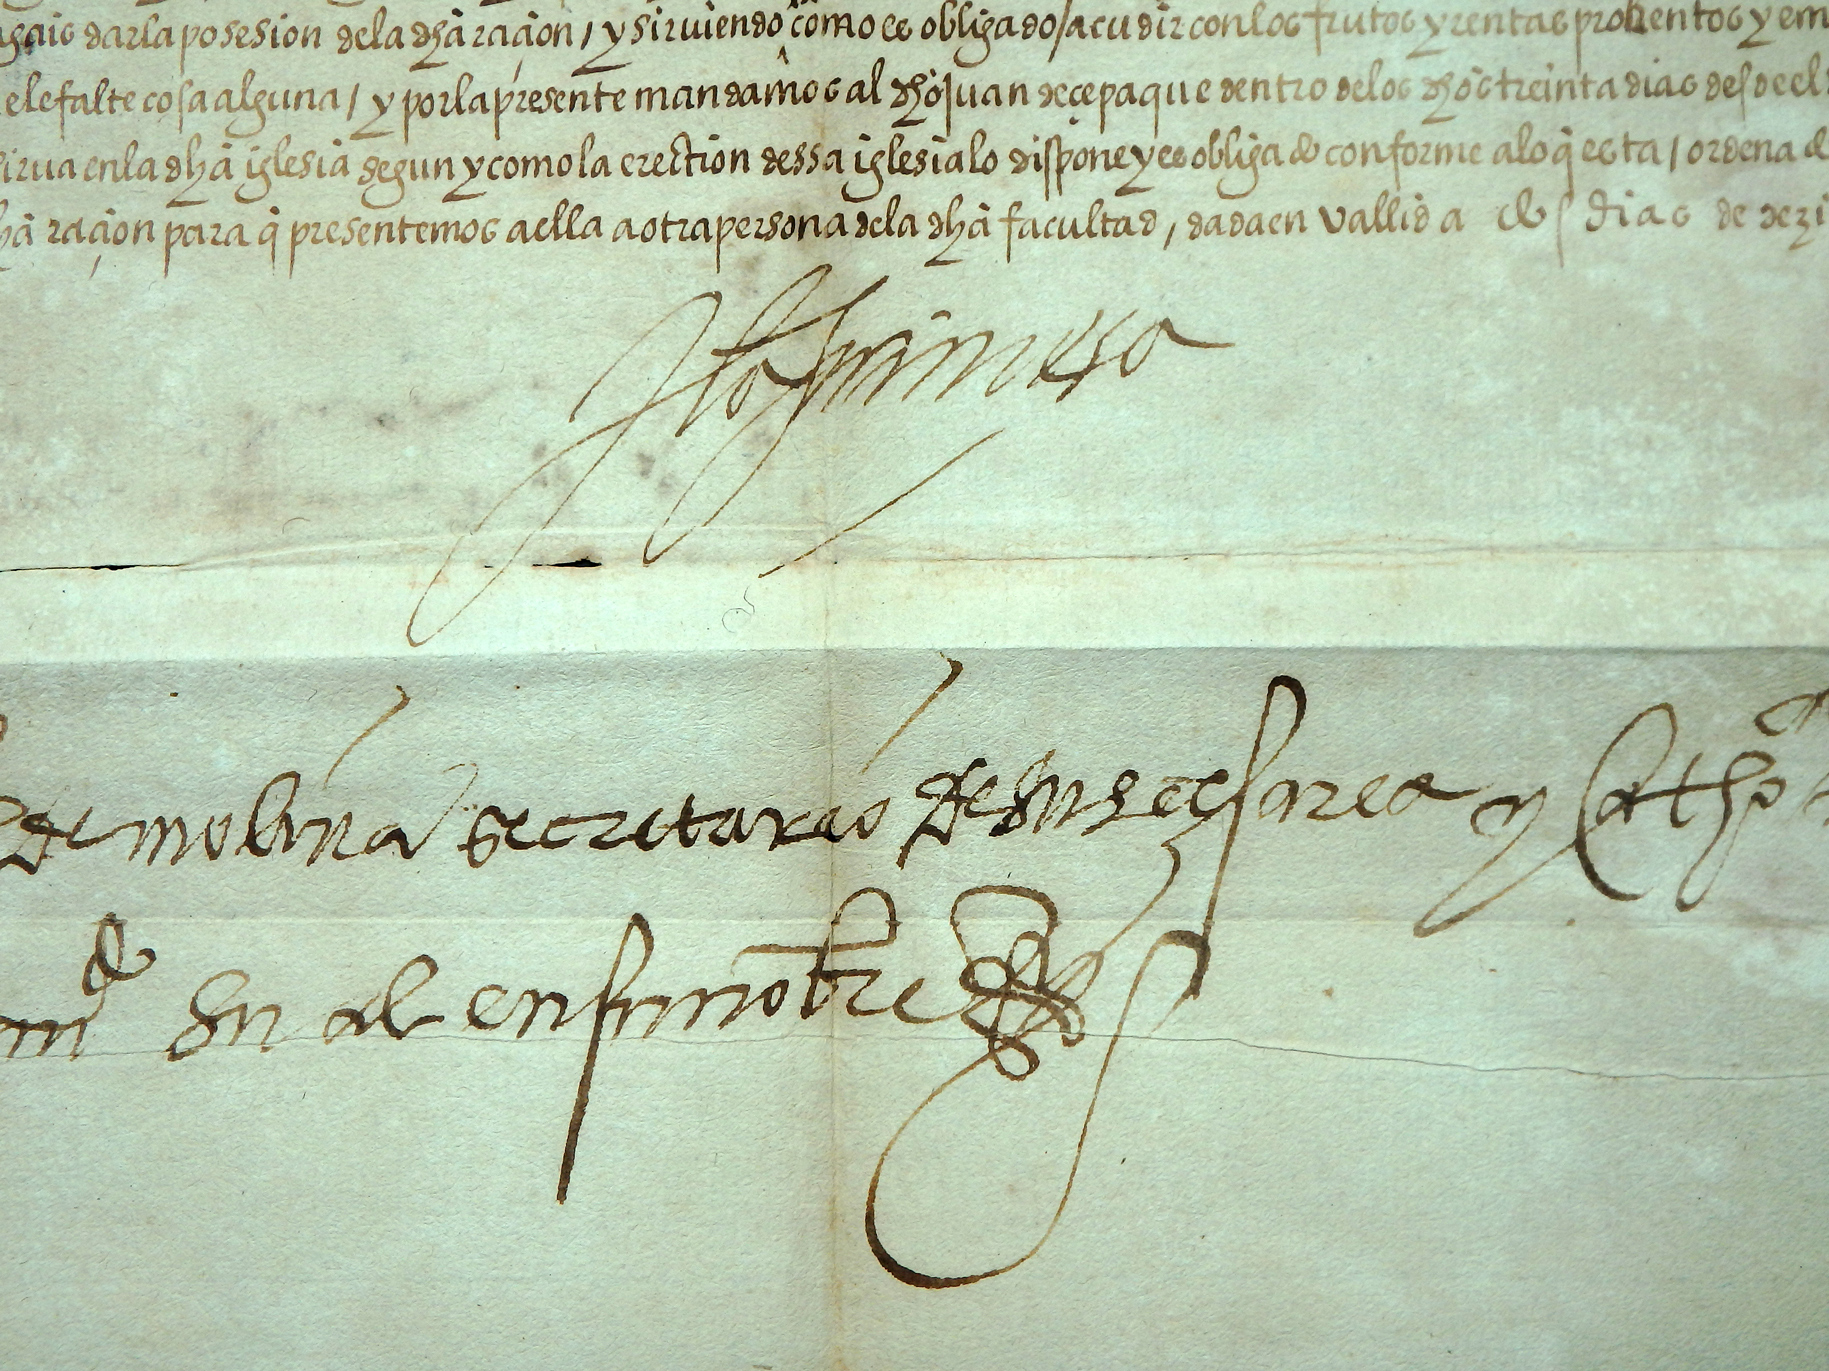 gais dar la posesion de la dhâ raçion / y sirviendo como es obligado / acudir con los frutos y rentas probentos y em
e le falte cosa alguna / y por la presente mandamos al dhô Juan de cepa que dentro de los dhôs treinta dias desde el
sirva en la dhâ iglesia segun y como la erection dessa iglesia lo dispone y es obligado conforme a lo q̃ esta / ordenad
hâ raçion para q̃ presentemos a ella a otra persona de la dhâ facultad, dada en vallid a dos dias de dezi
Yo la prinçesa
de molina secretario de su cesarea y Cath
md su al en su nombre